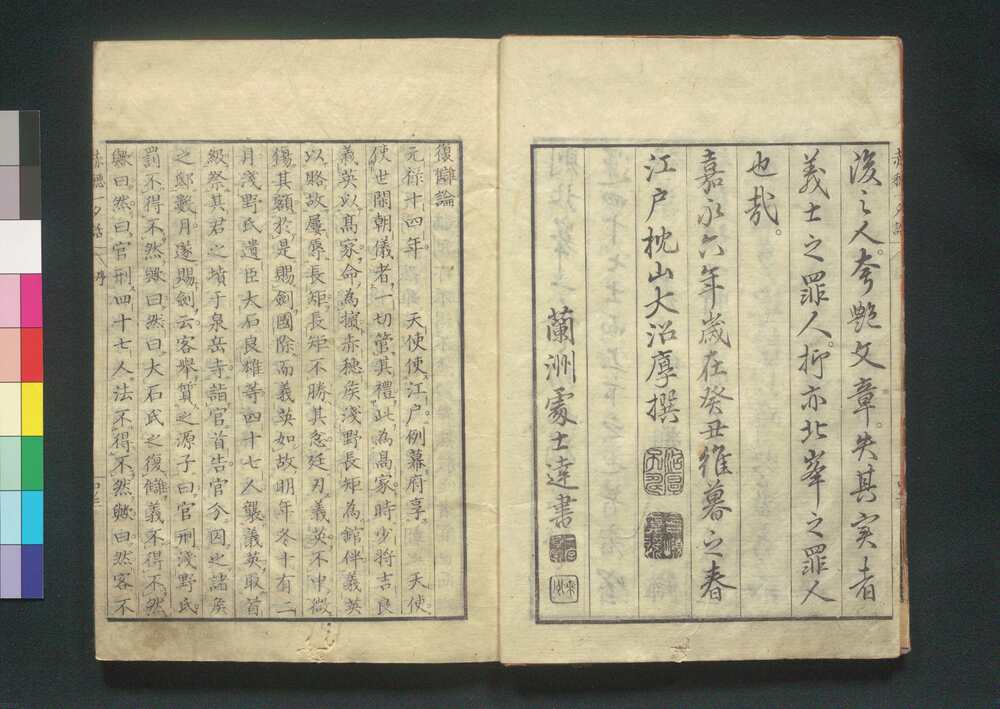 後之人。夸艷文章。失其実者
義士之罪人。抑亦北峯之罪人
也哉。
嘉永六年歳在癸丑維暮之春
江戸枕山大沼厚撰
蘭洲處士達書
復讎論
元禄十四年。天使使江戸。例幕府享。天使
使世閑朝儀者。一切管其禮。此為髙家。時少將吉良
義英以髙家。命為擯。赤穂矦淺野長矩為館伴。義英
以賂故。屢辱長矩。長矩不勝其忿。廷刃義英。不中。微
傷其額。於是賜劍國除。而義英如故。明年冬十有二
月。淺野氏遺臣大石良雄等四十七人。襲義英。取首
級。祭其君之墳于泉岳寺。詣官首告。官分囚之諸矦
之邸。數月。遂賜劍云。客舉質之源子曰。官刑淺野氏。
罰不得不然歟。曰然。曰大石氏之復讎。義不得不然
歟。曰然。曰官刑四十七人。法不得不然歟。曰然。客不
赤穂一夕話
序